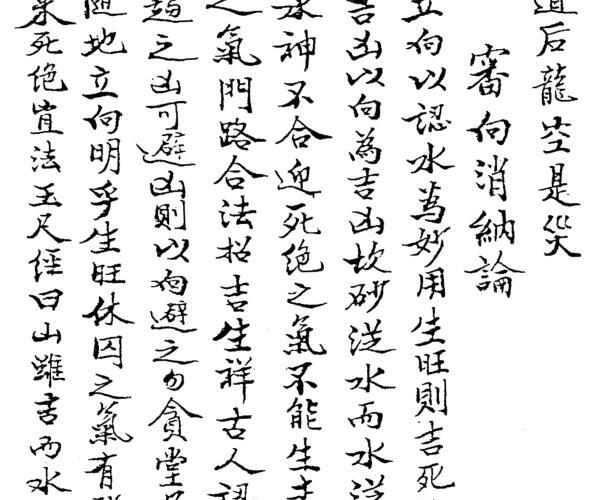 后龍空是災
審向消納論
立向以認水為妙用生旺則吉死
吉凶以向為吉凶故砂從水而水從
水神不合迎死絕之氣不能生
之氣門路合法招吉生祥古人認
趨之凶可避凶則以向避之勿貪堂
隨地立向明乎生旺休囚之氣有
來死絕豈法玉尺經曰山雖吉而水